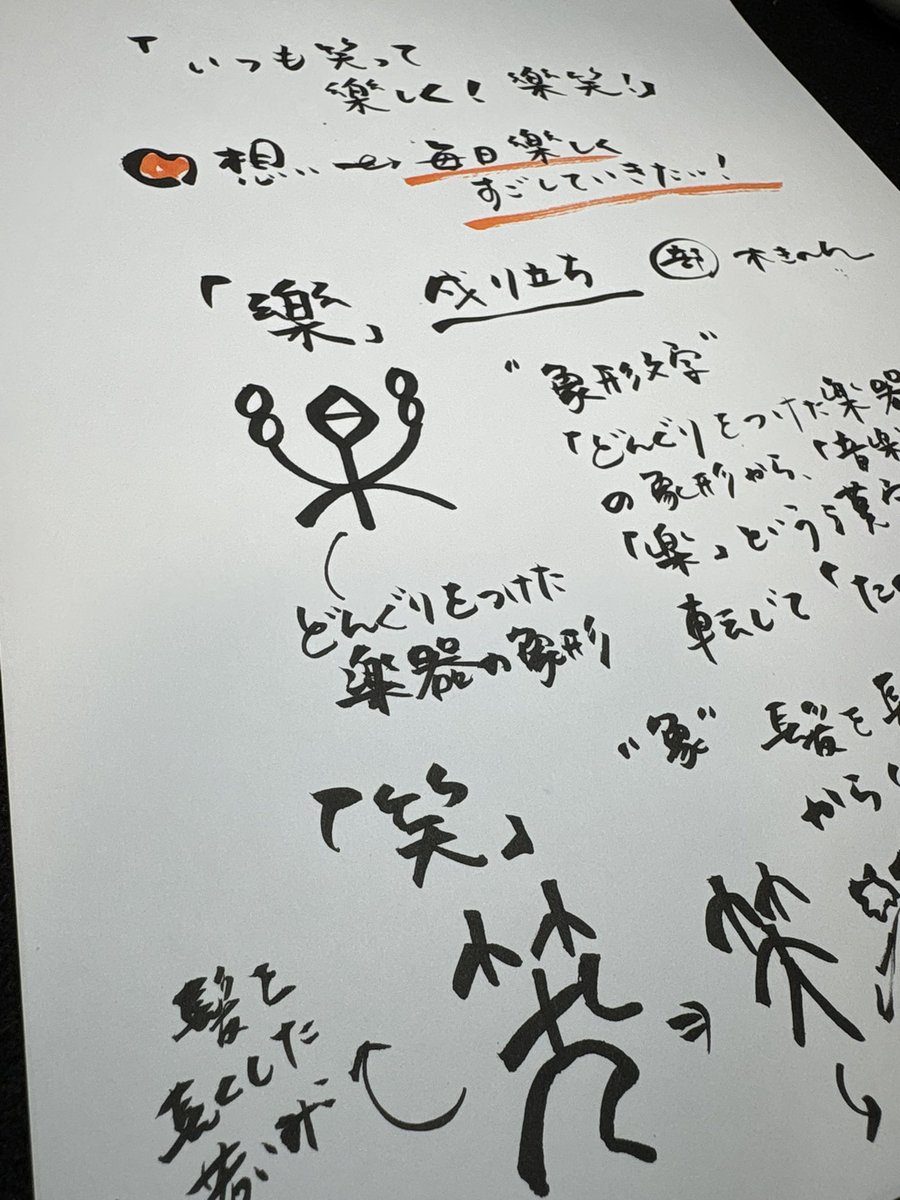 「いつも笑って
楽しく！楽笑！」
想い→毎日楽しく
すごしていきたい！
「楽」成り立ち 部 木きへん
"象形文字"
「どんぐりをつけた楽器
の象形から、「音楽
「楽」という漢字
転じて「た
どんぐりをつけた
楽器の象形
"象" 髪を長
から
「笑」
笑
髪を
長くした
若い